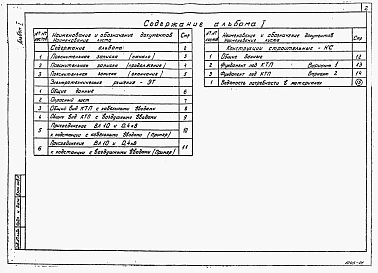 2
Альбом I
Содержание альбома I
№№ листа
Наименование и обозначение документов
Наименование листа
Стр
Содержание альбома 2
1 Пояснительная записка (начало) 3
2 Пояснительная записка (продолжение) 4
3 Пояснительная записка (окончание) 5
Электротехнические решения - ЭТ
1 Общие данные 6
2 Опросный лист 7
3 Общий вид КТП с кабельными вводами 8
4 Общий вид КТП с воздушными вводами 9
5 Присоединение ВЛ 10 и 0,4 кВ
к подстанции с кабельными вводами (пример) 10
6 Присоединение ВЛ 10 и 0,4 кВ
к подстанции с воздушными вводами (пример) 11
№№ листа
Наименование и обозначение документов
Наименование листа
Стр
Конструкции строительные - КС
1 Общие данные 12
2 Фундамент под КТП Вариант 1 13
3 Фундамент под КТП Вариант 2 14
1 Ведомость потребности в материалах 15